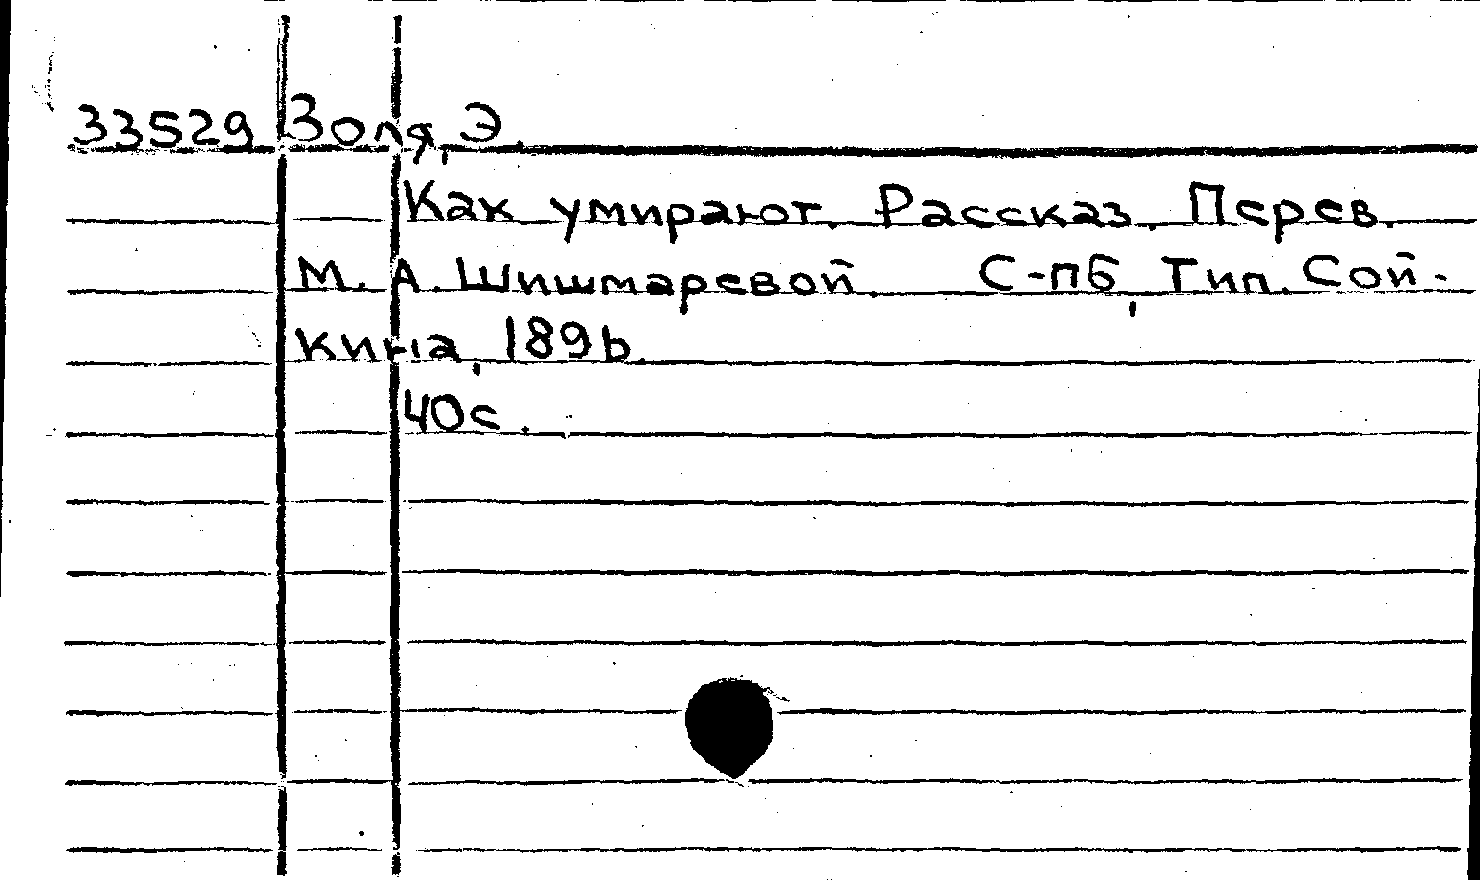 33529 Золя, Э.
Как умирают. Рассказ. Перев.
М. А. Шишмаревой. С-пб, Тип. Сой-
кина, 1896.
40 с.